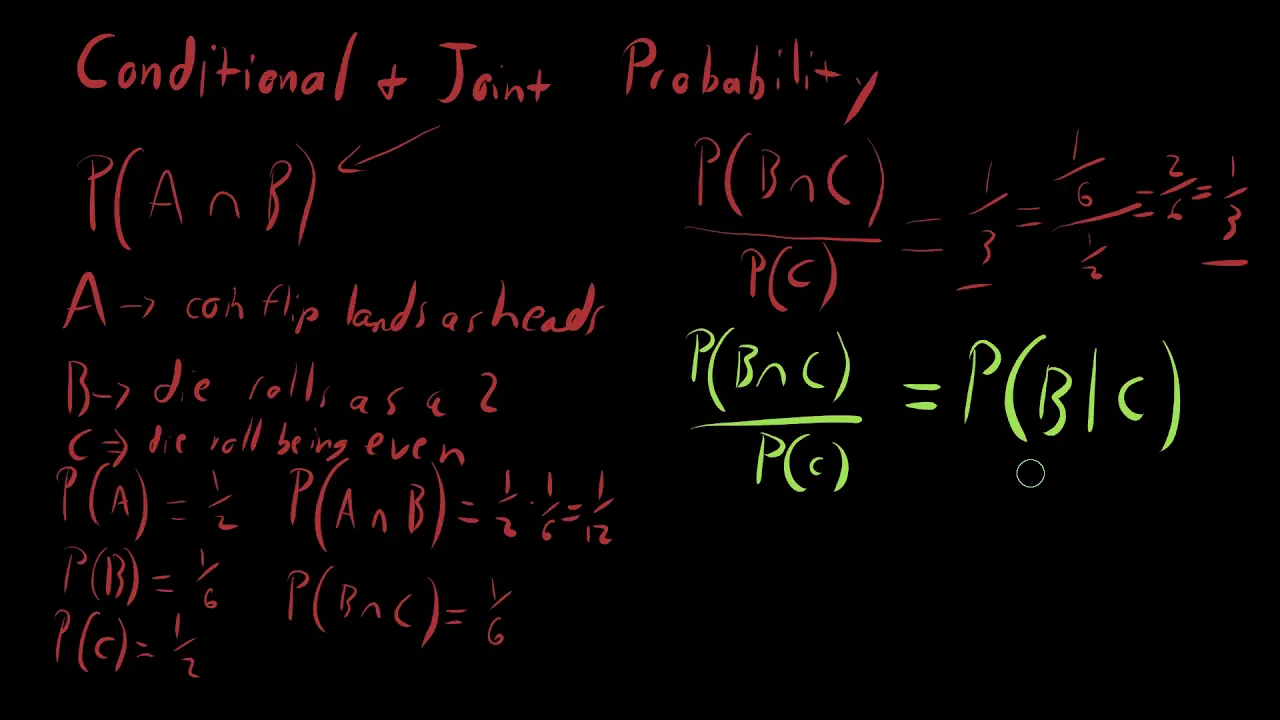 Conditional + Joint Probability
P(A ∩ B)
A → coin flip lands as heads
B → die rolls as a 2
C ⇒ die roll being even
P(A) = 1/2
P(A ∩ B) = 1/2 · 1/6 = 1/12
P(B) = 1/6
P(B ∩ C) = 1/6
P(C) = 1/2
P(B ∩ C) / P(C) = 1/3 = 1/6 / 1/2 = 2/6 = 1/3
P(B ∩ C) / P(C) = P(B | C)